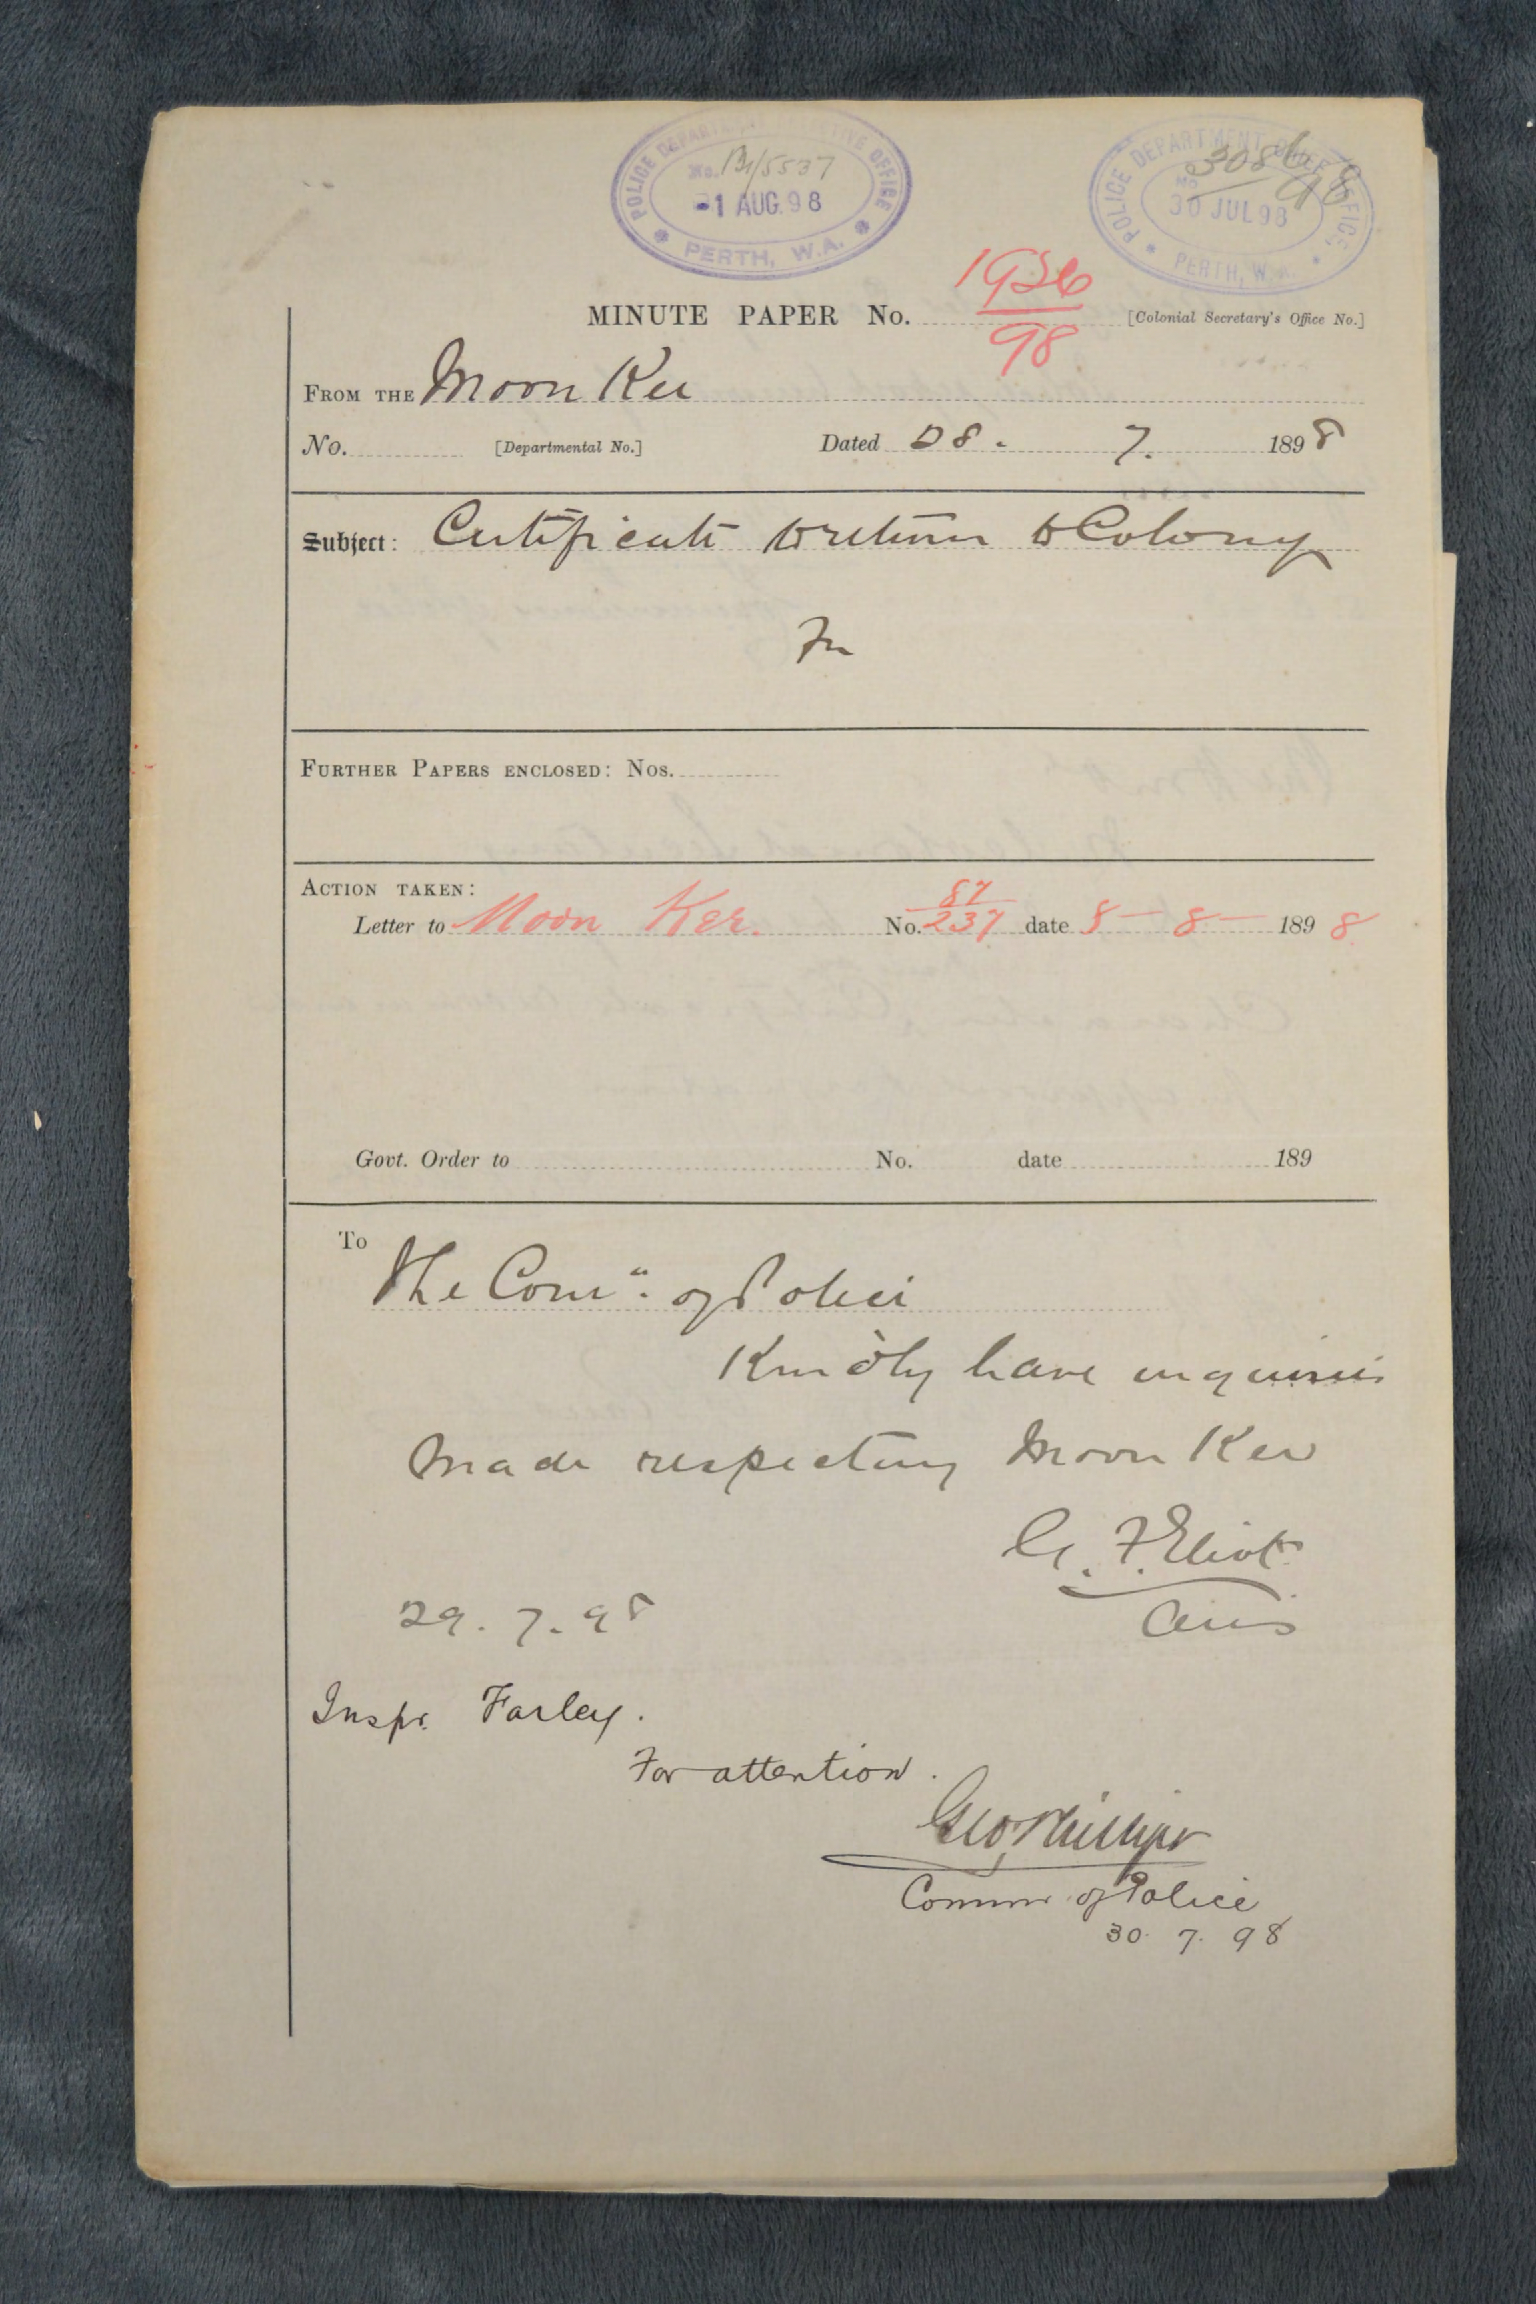 POLICE DEPARTMENT OFFICE
No. 5537
1 AUG. 98
PERTH, W.A.
POLICE DEPARTMENT OFFICE
No 3086/98
30 JUL 98
PERTH, W.A.
MINUTE PAPER No. 1956/98 [Colonial Secretary's Office No.]
FROM THE Moon Kee
No. [Departmental No.] Dated 28. 7. 1898
Subject: Certificate to return to Colony
For
FURTHER PAPERS ENCLOSED: Nos.
ACTION TAKEN:
Letter to Moon Kee. No. 87/237 date 5-8-1898
Govt. Order to No. date 189
To
The Comr. of Police
Kindly have inquiries
made respecting Moon Kee
G. F. Eliot
29.7.98
Inspr. Farley.
For attention.
Geo Phillips
Commr of Police
30. 7. 98